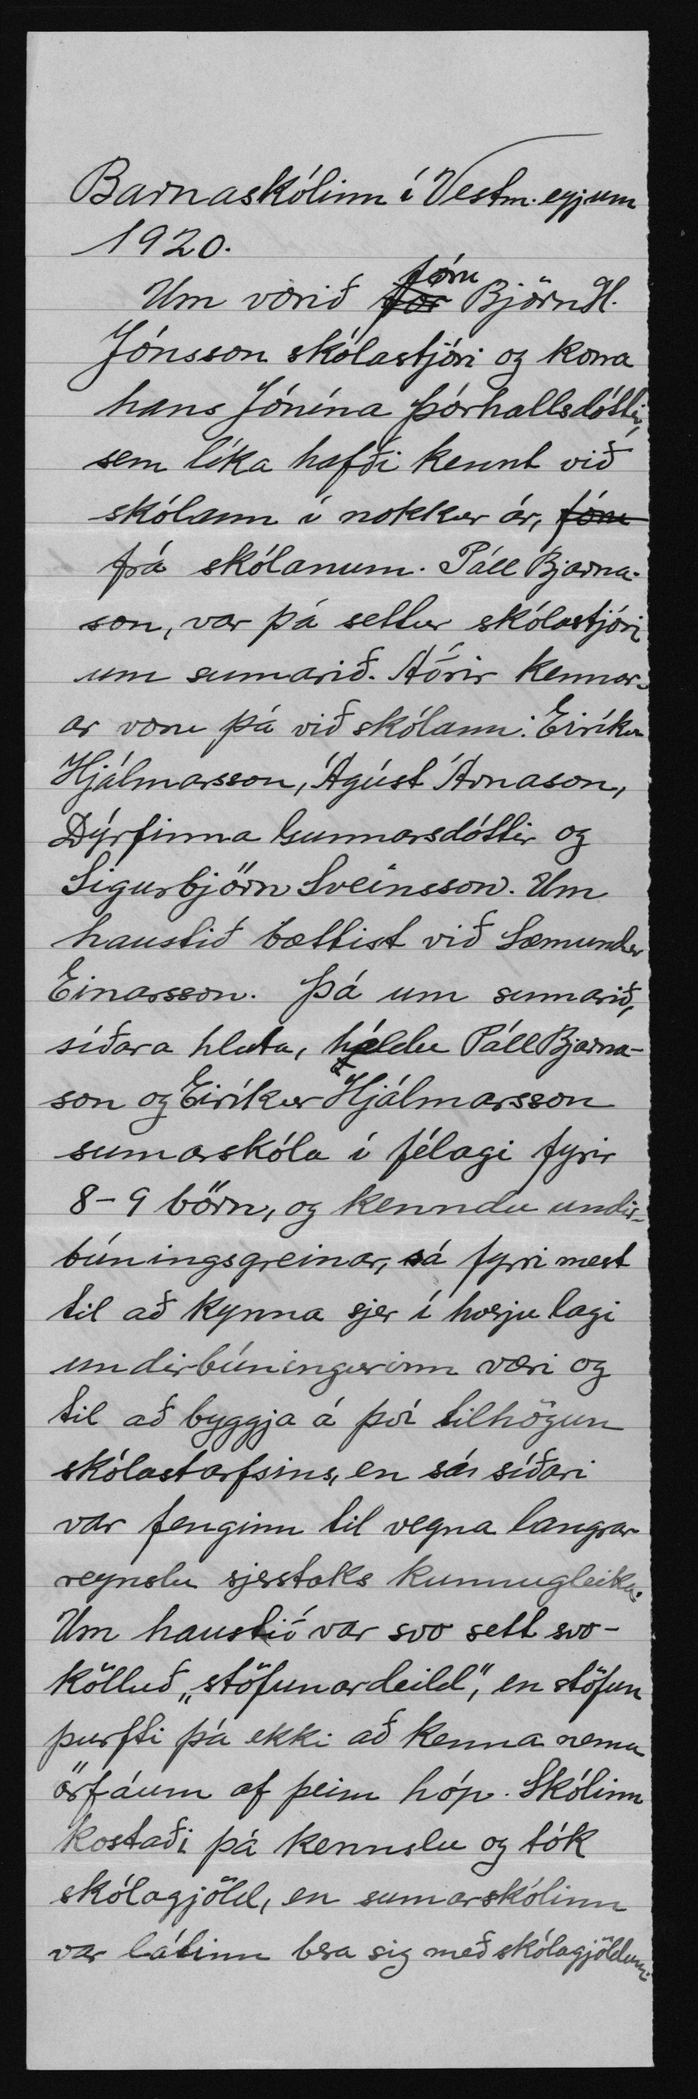 Barnaskólinn í Vestm.eyjum
1920.
Um vorið fóru Björn H.
Jónsson skólastjóri og kona
hans Jónína Þórhallsdóttir,
sem líka hafði kennt við
skólann í nokkur ár, fóru
frá skólanum. Páll Bjarna-
son, var þá settur skólastjóri
um sumarið. Aðrir kennar-
ar voru þá við skólann: Eiríkur
Hjálmarsson, Ágúst Árnason,
Dýrfinna Gunnarsdóttir og
Sigurbjörn Sveinsson. Um
haustið bættist við Sæmundur
Einarsson. Þá um sumarið,
síðara hluta, héldu Páll Bjarna-
son og Eiríkur Hjálmarsson
sumarskóla í félagi fyrir
8-9 börn, og kenndu undir-
búningsgreinar, sá fyrri mest
til að kynna sjer í hverju lagi
undirbúningurinn væri og
til að byggja á því tilhögun
skólastarfsins, en sá síðari
var fenginn til vegna langrar
reynslu sjerstaks kunnugleika.
Um haustið var svo sett svo-
kölluð „stöfunardeild“, en stöfun
þurfti þá ekki að kenna nema
örfáum af þeim hóp. Skólinn
kostaði þá kennslu og tók
skólagjöld, en sumarskólinn
var látinn bera sig með skólagjöldum.